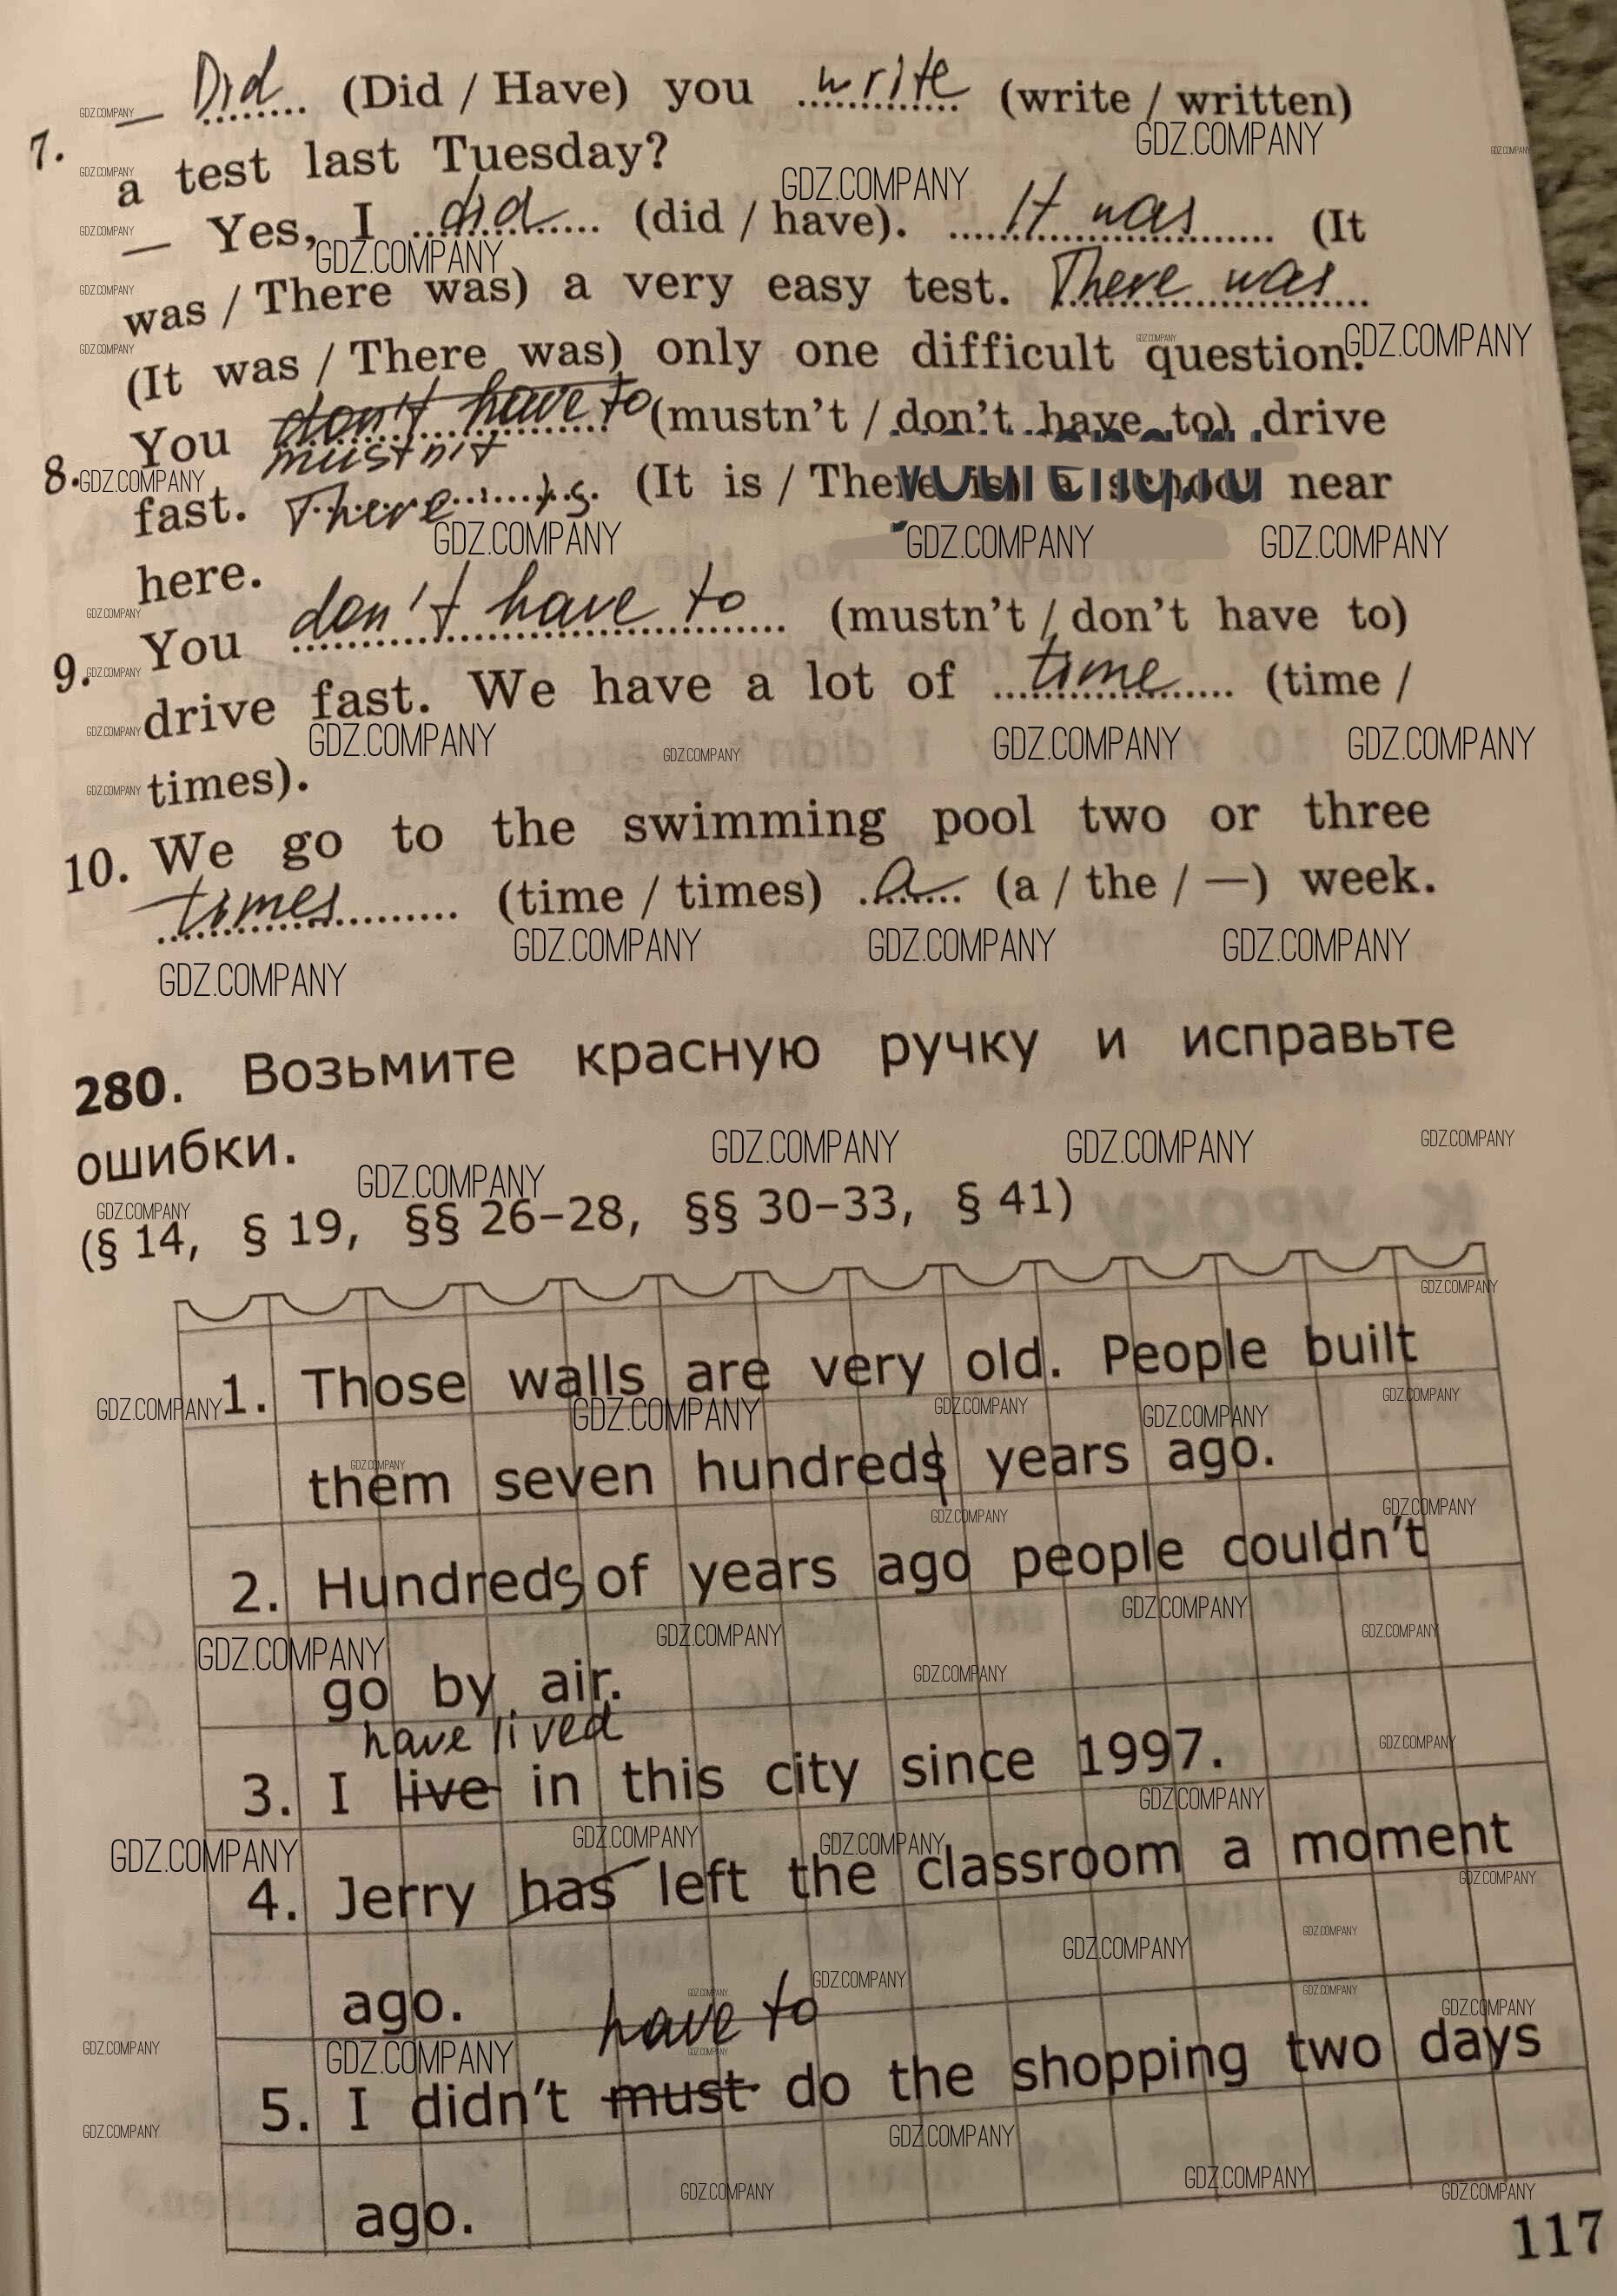 7. — Did (Did / Have) you write (write / written)
a test last Tuesday?
— Yes, I did (did / have). It was (It
was / There was) a very easy test. There was
(It was / There was) only one difficult question.
8. You don't have to (mustn't / don't have to) drive
mustn't
fast. There is (It is / There is) a school near
here.
9. You don't have to (mustn't / don't have to)
drive fast. We have a lot of time (time /
times).
10. We go to the swimming pool two or three
times (time / times) a (a / the / —) week.
280. Возьмите красную ручку и исправьте
ошибки.
(§ 14, § 19, §§ 26–28, §§ 30–33, § 41)
1. Those walls are very old. People built
them seven hundreds years ago.
2. Hundreds of years ago people couldn't
go by air.
have lived
3. I live in this city since 1997.
4. Jerry has left the classroom a moment
ago.
have to
5. I didn't must do the shopping two days
ago.
117
GDZ.COMPANY